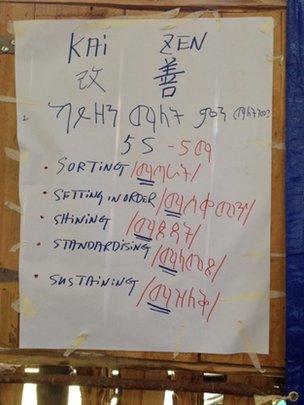 KAI ZEN
改 善
ካይዘን ማለት ምን ማለት ነው?
5 S - 5 ማ
• SORTING /ማጣራት/
• SETTING IN ORDER /ማስቀመጥ/
• SHINING /ማጽዳት/
• STANDARDISING /ማላመድ/
• SUSTAINING /ማዝለቅ/